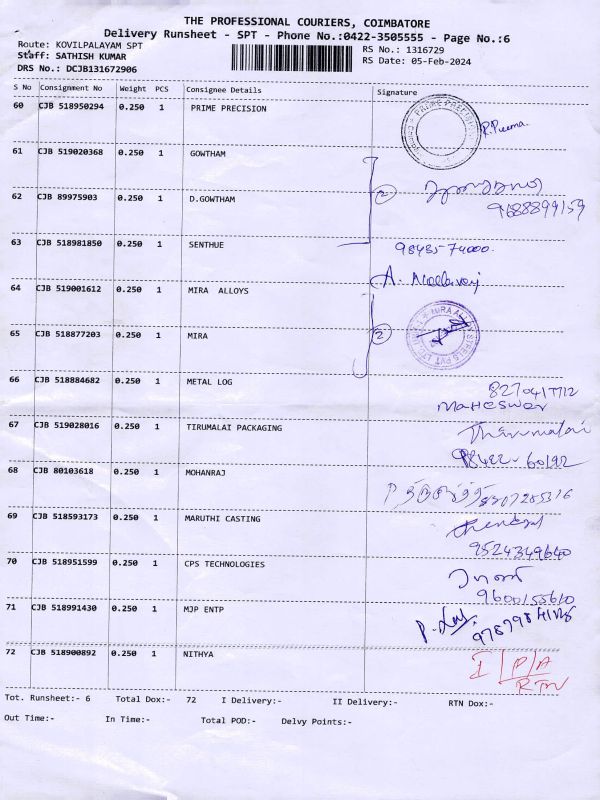 THE PROFESSIONAL COURIERS, COIMBATORE
Delivery Runsheet - SPT - Phone No.:0422-3505555 - Page No.:6
Route: KOVILPALAYAM SPT
RS No.: 1316729
Staff: SATHISH KUMAR
RS Date: 05-Feb-2024
DRS No.: DCJB131672906
S No Consignment No Weight PCS Consignee Details Signature
60 CJB 518950294 0.250 1 PRIME PRECISION
61 CJB 519020368 0.250 1 GOWTHAM
2
62 CJB 89975903 0.250 1 D.GOWTHAM
9688899159
63 CJB 518981850 0.250 1 SENTHUE
98435-74000.
64 CJB 519001612 0.250 1 MIRA ALLOYS
65 CJB 518877203 0.250 1 MIRA
2
66 CJB 518884682 0.250 1 METAL LOG
MAHESWER
67 CJB 519028016 0.250 1 TIRUMALAI PACKAGING
Thirumalai
98422-60192
68 CJB 80103618 0.250 1 MOHANRAJ
69 CJB 518593173 0.250 1 MARUTHI CASTING
9524349640
70 CJB 518951599 0.250 1 CPS TECHNOLOGIES
9600155610
71 CJB 518991430 0.250 1 MJP ENTP
72 CJB 518900892 0.250 1 NITHYA
I P/A
RTN
Tot. Runsheet:- 6 Total Dox:- 72 I Delivery:- II Delivery:- RTN Dox:-
Out Time:- In Time:- Total POD:- Delvy Points:-